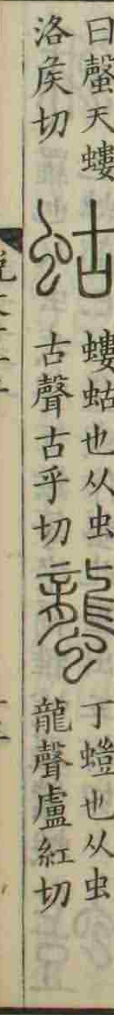 曰䘀天螻
洛矦切
蛄
螻蛄也从虫
古聲古乎切
蠪
丁螘也从虫
龍聲盧紅切